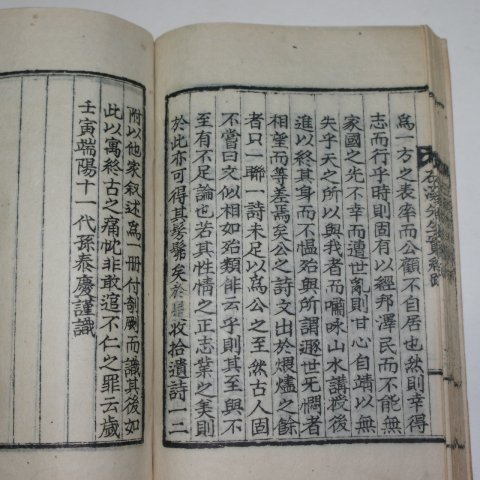 爲一方之表率而公顧不自居也然則幸得
志而行乎時則固有以經邦澤民而不能無
家國之先不幸而遭世亂則甘心自靖以無
失乎天之所以與我者而嘯咏山水講授後
進以終其身而不慍殆與所謂遯世旡憫者
相望而等差焉矣公之詩文出於煨燼之餘
者只一聯一詩未足以爲公之至然古人固
不嘗曰文似相如殆類俳云乎則其至與不
至有不足論也若其性情之正志業之美則
於此亦可得其髣髴矣於
收拾遺詩一二
附以他家叙述爲一册付剞劂而識其後如
此以寓終古之痛忱非敢逭不仁之罪云歲
壬寅端陽十一代孫泰慶謹識
溪先生實紀